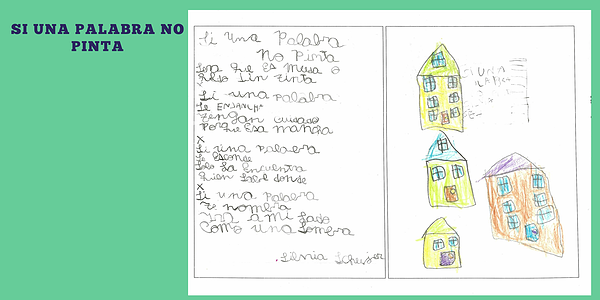 SI UNA PALABRA NO
PINTA
Si una Palabra
No Pinta
Sera Que es Musa o
sin tinta
Si una palabra
Se
Tengan cuidado
Porque Esa mancha
X
Si una palabra
Se Esconde
Solo La Encuentra
Quien sabe donde
X
Si una palabra
Te nombra
a mi lado
Como una sombra
Silvia Schujer
SI UNA